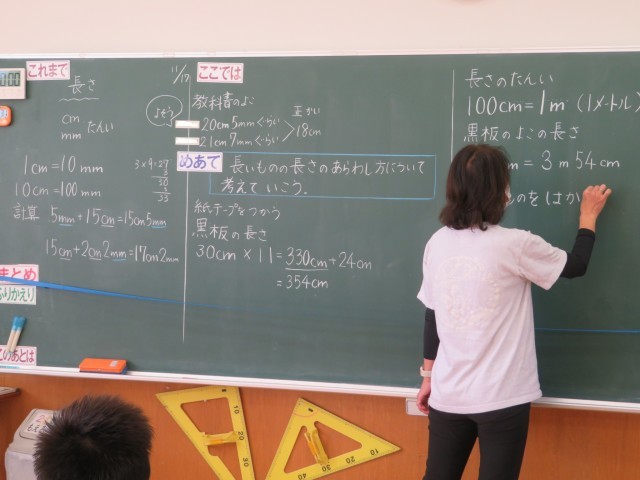 これまで
長さ
cm
mm たんい
1cm=10mm
10cm=100mm
計算 5mm+15cm=15cm5mm
15cm+2cm2mm=17cm2mm
3×9=27
35
まとめ
ふりかえり
このあとは
11/17
ここでは
よそう
教科書のよこ
20cm5mmぐらい
21cm7mmぐらい
18cm
めあて
長いものの長さのあらわし方について
考えていこう。
紙テープをつかう
黒板の長さ
30cm×11=330cm+24cm
=354cm
長さのたんい
100cm=1m (1メートル)
黒板のよこの長さ
m=3m54cm
のをはか